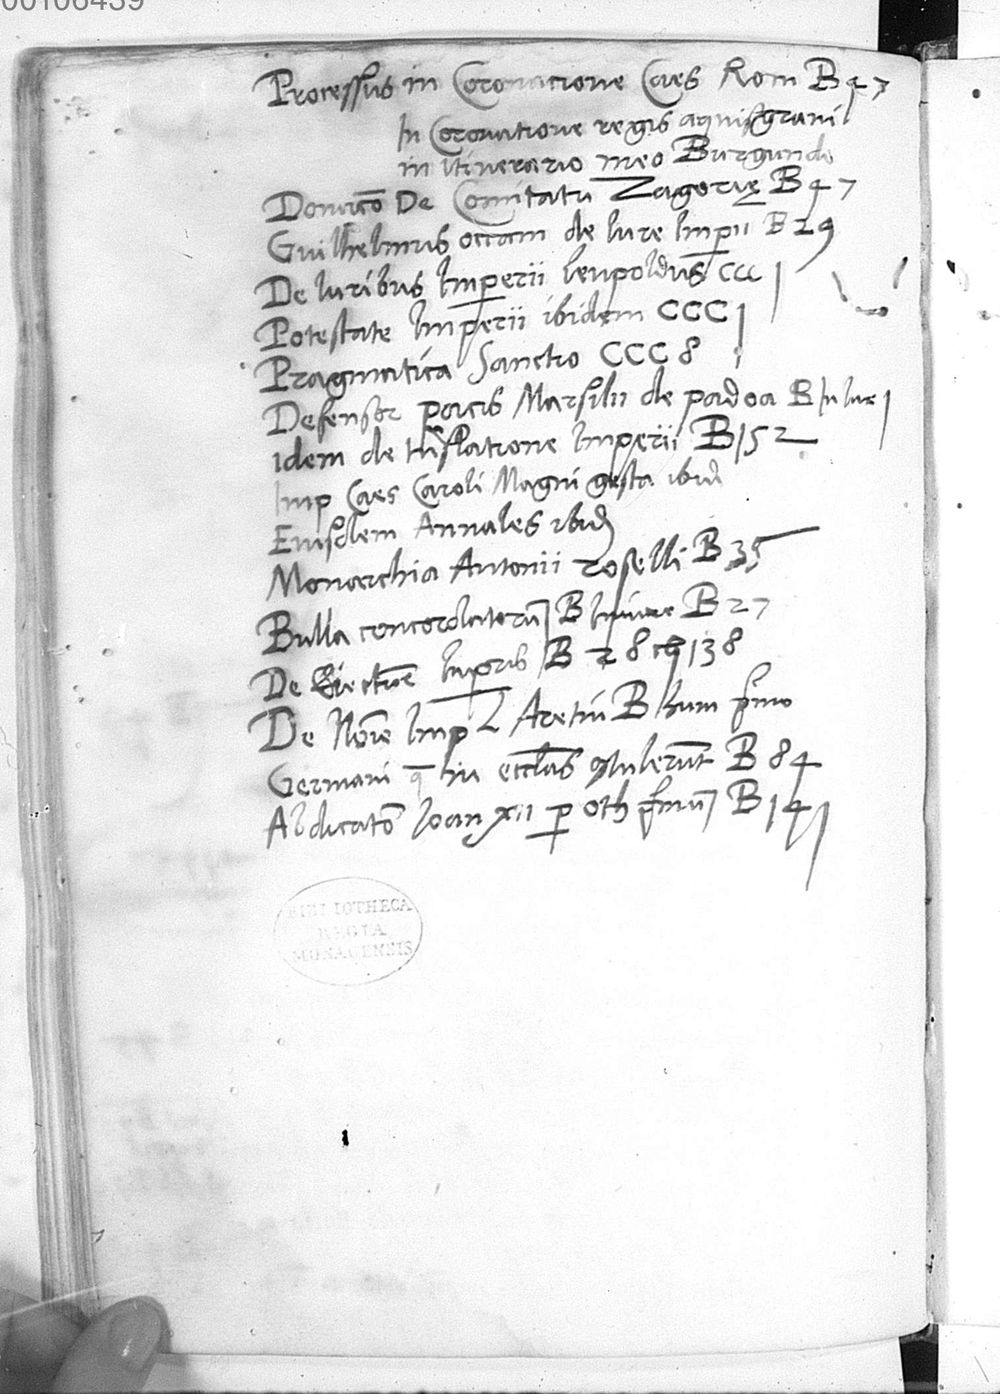 00106439
Processus in Coronacione Caes Rom B 47
In Coronatione regis aquisgrani
in Itinerario meo Burgundo
De Comitatu Zagorię B 47
Guilhelmus occam de Iure Impii B 29
De Iuribus Imperii leupoldus CCC
Potestate Imperii ibidem CCC 1
Pragmatica Sanctio CCC 8
Defensor pacis Marsilii de padoa B In Iure 1
idem de trāslatione Imperii B 152
Imp Caes Caroli Magni gesta ibid
Eiusdem Annales ibid
Monarchia Antonii roselli B 35
Bulla concordatorū B Iniure B 27
De Electiōe Impris B 28 138
De Noīe Imp L Aretin B hum pīmo
Germani ecclīas B 84
Abdicatō Ioan xii p oth pīmū B 141
BIBLIOTHECA
REGIA
MONACENSIS